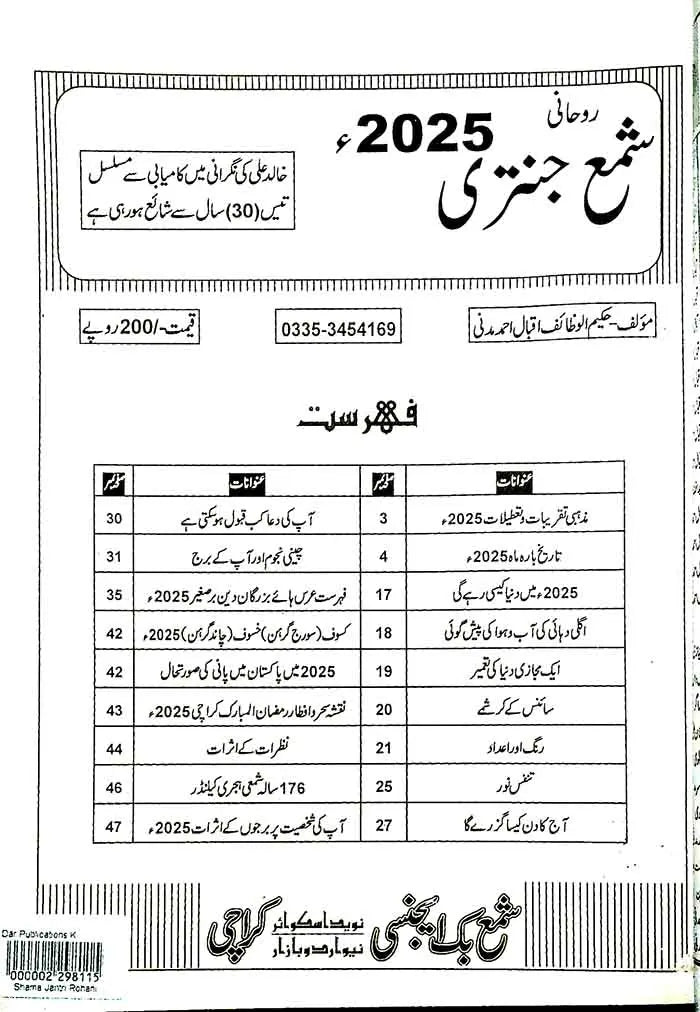 روحانی
شمع جنتری
2025ء
خالد علی کی نگرانی میں کامیابی سے مسلسل
تیس (30) سال سے شائع ہو رہی ہے
مؤلف- حکیم الوظائف اقبال احمد مدنی
0335-3454169
قیمت-/200 روپے
فہرست
عنوانات صفحہ نمبر عنوانات صفحہ نمبر
مذہبی تقریبات و تعطیلات 2025ء 3 آپ کی دعا کب قبول ہو سکتی ہے 30
تاریخ بارہ ماہ 2025ء 4 چینی نجوم اور آپ کے برج 31
2025ء میں دنیا کیسی رہے گی 17 فہرست عرس ہائے بزرگان دین برصغیر 2025ء 35
اگلی دہائی کی آب و ہوا کی پیش گوئی 18 کسوف (سورج گرہن) خسوف (چاند گرہن) 2025ء 42
ایک مجازی دنیا کی تعمیر 19 2025 میں پاکستان میں پانی کی صورتحال 42
سائنس کے کرشمے 20 نقشہ سحر و افطار رمضان المبارک کراچی 2025ء 43
رنگ اور اعداد 21 نظرات کے اثرات 44
تنفس نور 25 176 سالہ شمسی ہجری کیلنڈر 46
آج کا دن کیسا گزرے گا 27 آپ کی شخصیت پر برجوں کے اثرات 2025ء 47
شمع بک ایجنسی
نوید اسکوائر
نیو اردو بازار
کراچی
Dar Publications K
000002 298115
Shama Jantri Rohani